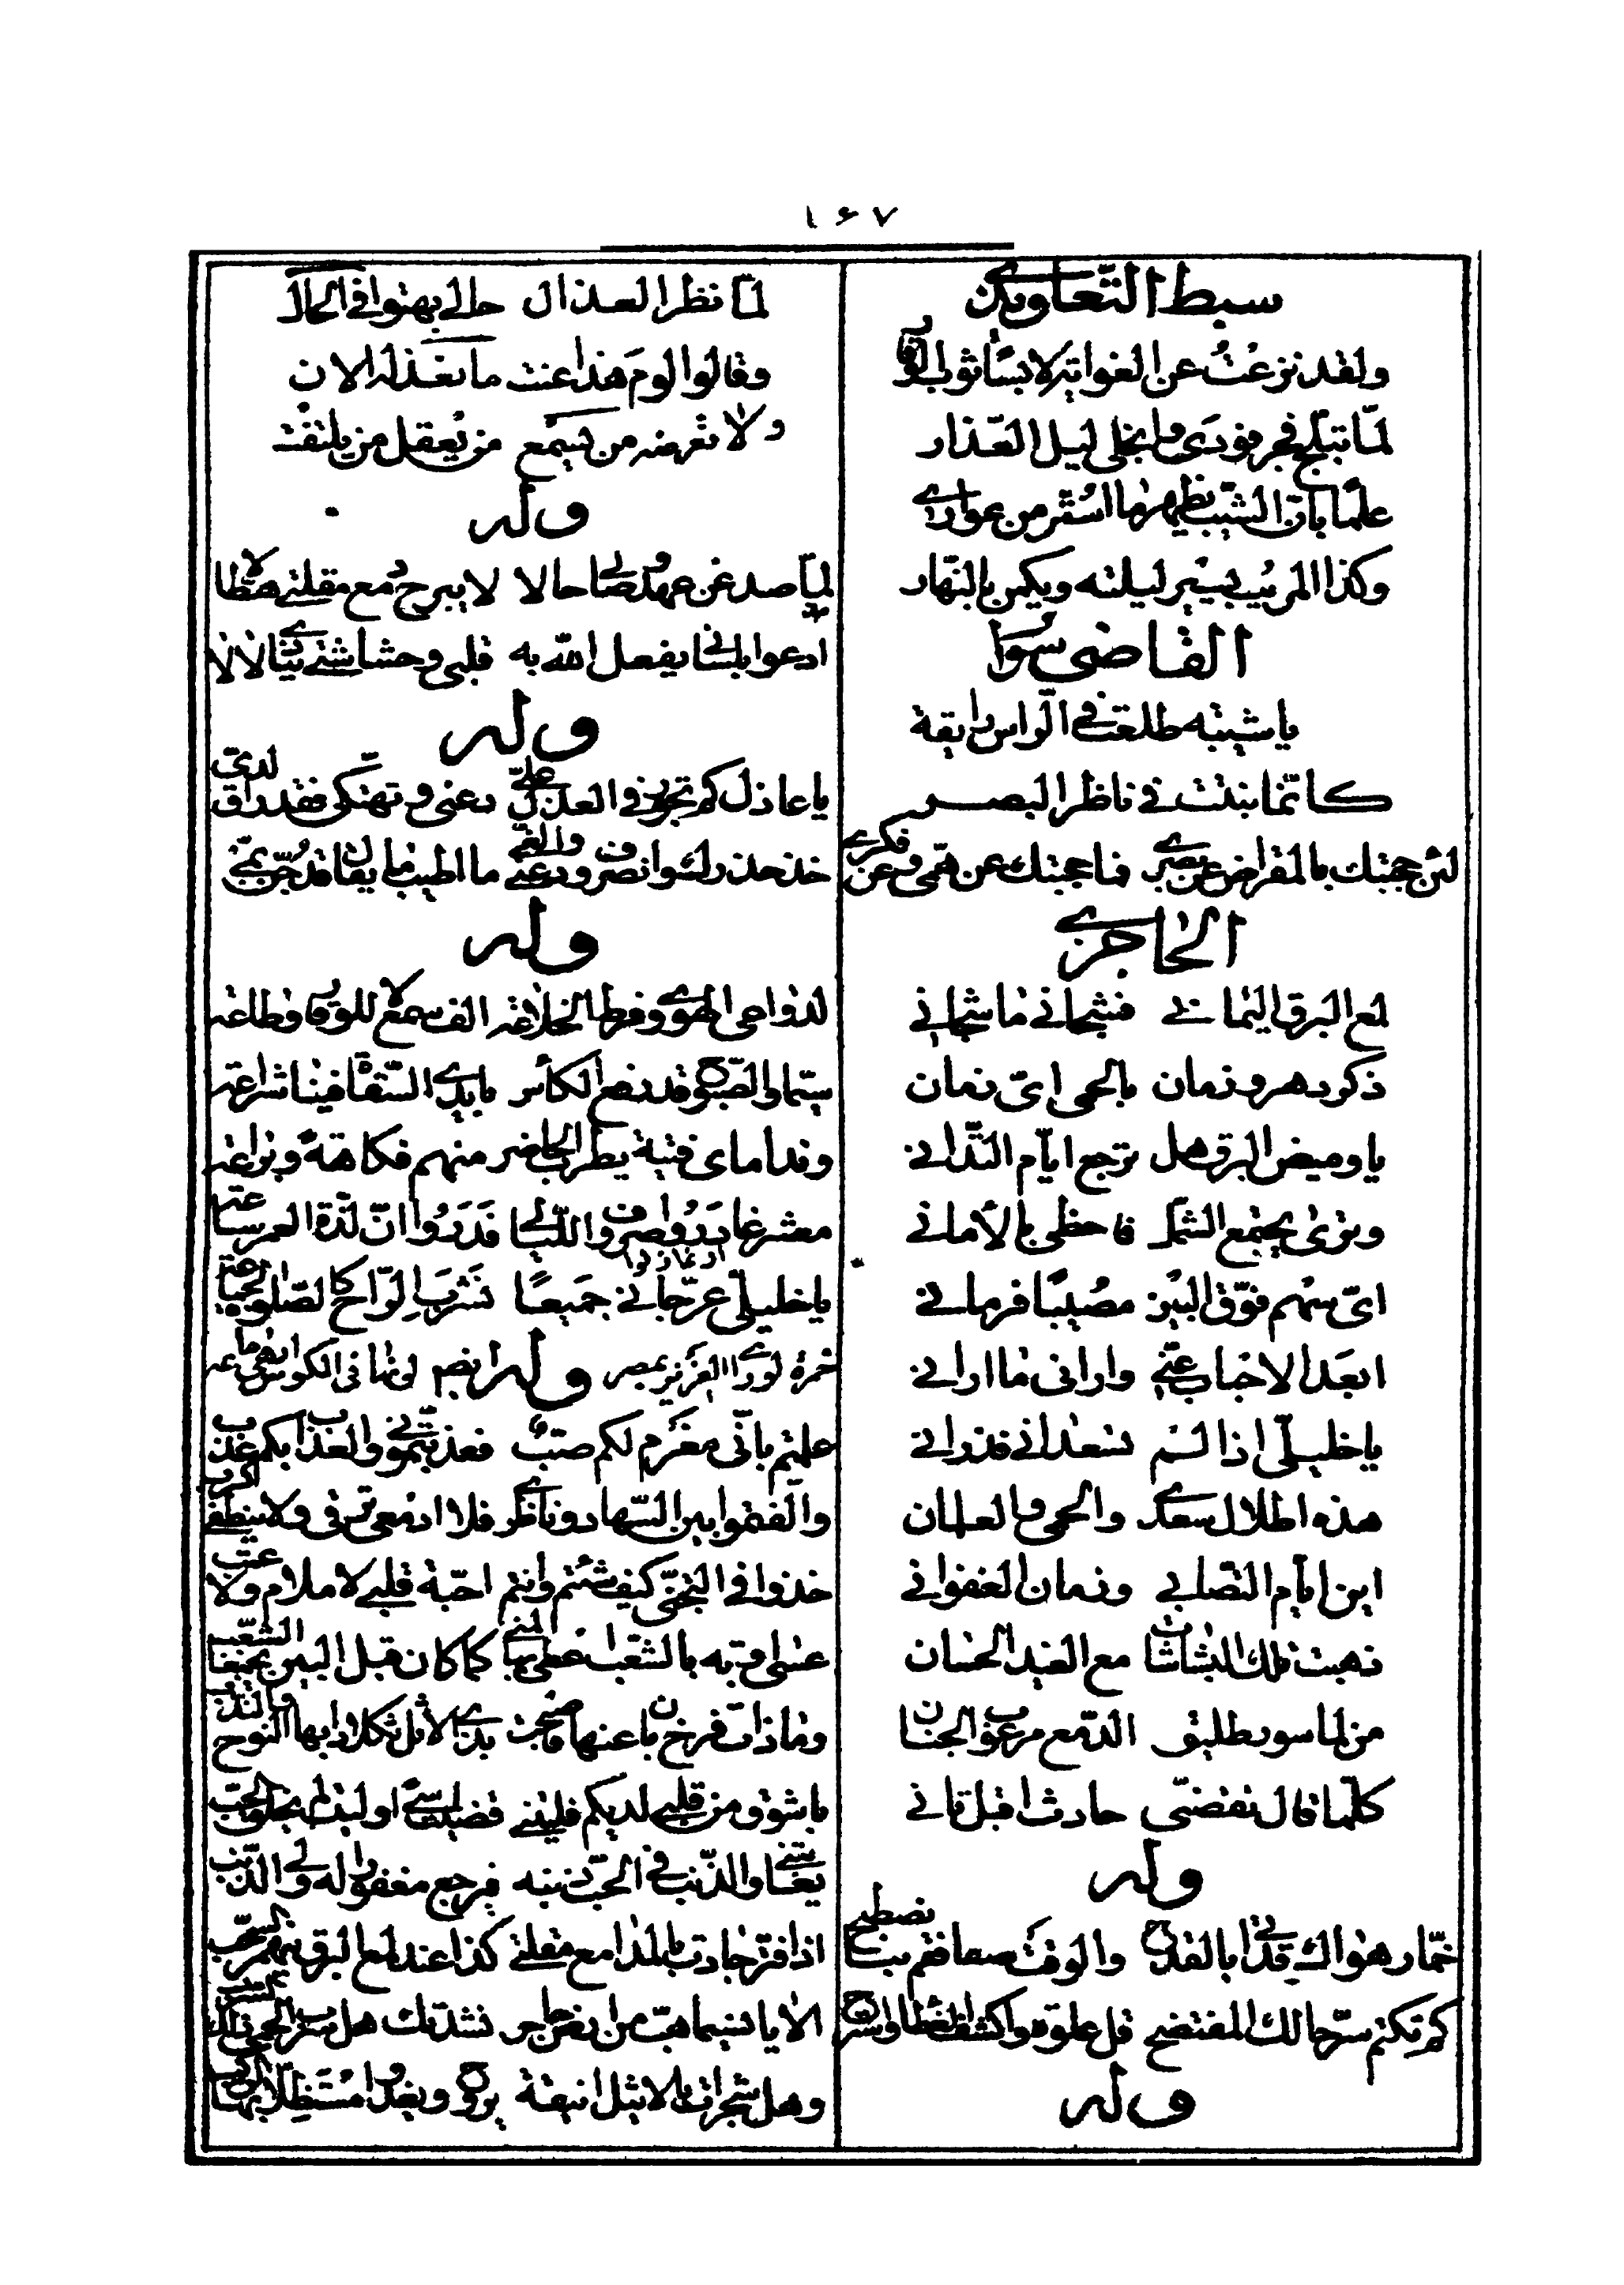 ١٦٧
سبط التعاويذى
ولقد نزعت عن الغواية لابسا ثوب الوقار
لمّا تبلّج فجر فودى وانجلى ليل العذار
علما بان الشيب يظهر ما استتر من عوارى
وكذا المريب يسير ليلته ويكمن بالنهار
القاضى سوار
يا شيبة طلعت فى الراس رايقة
كانّما نبتت فى ناظر البصر
لئن حجبتك بالمقراض عن بصرى فما حجبتك عن همّى وعن فكرى
الحاجرى
لمع البرق اليمانى فشجانى ما شجانى
ذكر دهر وزمان بالحمى اىّ زمان
يا وميض البرق هل ترجع ايّام التدانى
وترى يجتمع الشمل فاحظى بالأمانى
اىّ سهم فوّق البين مصيبا فرمانى
ابعد الاحباب عنّى وارانى ما ارانى
يا خليلىّ اذا لم تسعدانى فذرانى
هذه اطلال سعدى والحمى والعلمان
اين ايام التصابى وزمان العنفوانى
ذهبت تلك البشاشات مع الغيد الحسان
من لماسور طليق الدّمع مرعوب الجنان
كلّما قال تقضّى حادث اقبل ثانى
وله
خمّار هواك قد اتى بالقدح والوقت صفا فقم بنا نصطبح
كم تكتم سرّ حالك المفتضح قل علوة واكشف الغطا واسترح
وله
لمّا نظر العذال حالى بهتوا فى الحال
وقالوا لوم هذا عنت ما نعذله الان
ولا نعرضه من يسمع من يعقل من يلتفت
وله
لمّا صد عن عهد وصالى حالا لا يبرح دمع مقلتى هطالا
ادعوا بلسانى يفعل الله به قلبى وحشاشتى تنادى لا لا
وله
يا عاذل كم تجور فى العذل علىّ دعنى وتهتكى فقد راق لدىّ
خذ حذرك وانصرف ودعنى والغى ما اطيب ما يقال قد جنّ بمى
وله
لذ داعى الهوى وفرط الخلاعة الف سمعا للوقار وطاعة
سيّما والصبوح قد رفع الكاس بايدى السقاة فينا شراعة
ونداماى فتية يطرب الحاضر منهم فكاهة وبراعة
معشر غادروا صروف الليالى اذ غازلوا قدروا انّ لذّة العمر ساعة
يا خليلىّ عرّجا بى جميعا نشرب الراح كالصلوة جماعة
خمرة لو راى العزيز بمصر لونها فى الكوس ما ابتغى صاعه
وله ايضا
علمتم بانّى مغرم لكم صبّ فعذبتمونى والعذاب بكم عذب
والّفتموا بين السهاد وناظرى فلا ادمعى ترقى ولا ينطفى الكرب
خذوا فى التجنّى كيف شئتم وانتم احبّة قلبى لا ملام ولا عتب
عسى اوبة بالشعب اعطى بها المنى كما كان قبل البين يجمعنا الشعب
وما ذات فرخ بان عنها فاصبحت بذى الاثل ثكلا دابها النوح والندب
باشوق من قلبى لديكم فليتنى قضيت اسى او ليت لم يخلق الحب
يعنّفنى والذنب فى الحب ذنبه فيرجع مغفورا له ولى الذنب
اذا فترت جادت بالمدامع مقلتى كذا عند لمع البرق تنهمر السحب
الا يا نسيما هبّ من ارض حاجر نشدتك هل سرب الحمى ذلك السرب
وهل شجرات بالاثيل انيقة يروح ويغدو مستظلا بها الركب